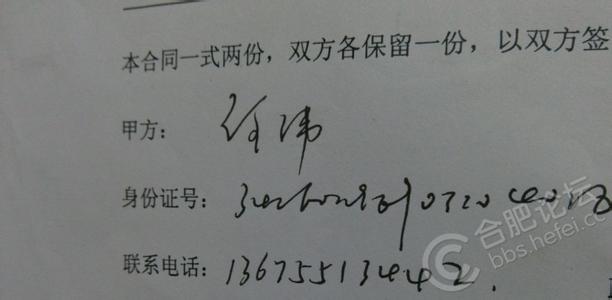 本合同一式两份，双方各保留一份，以双方签
甲方：任伟
身份证号：
联系电话：13675513442.
合肥论坛
bbs.hefei.cc